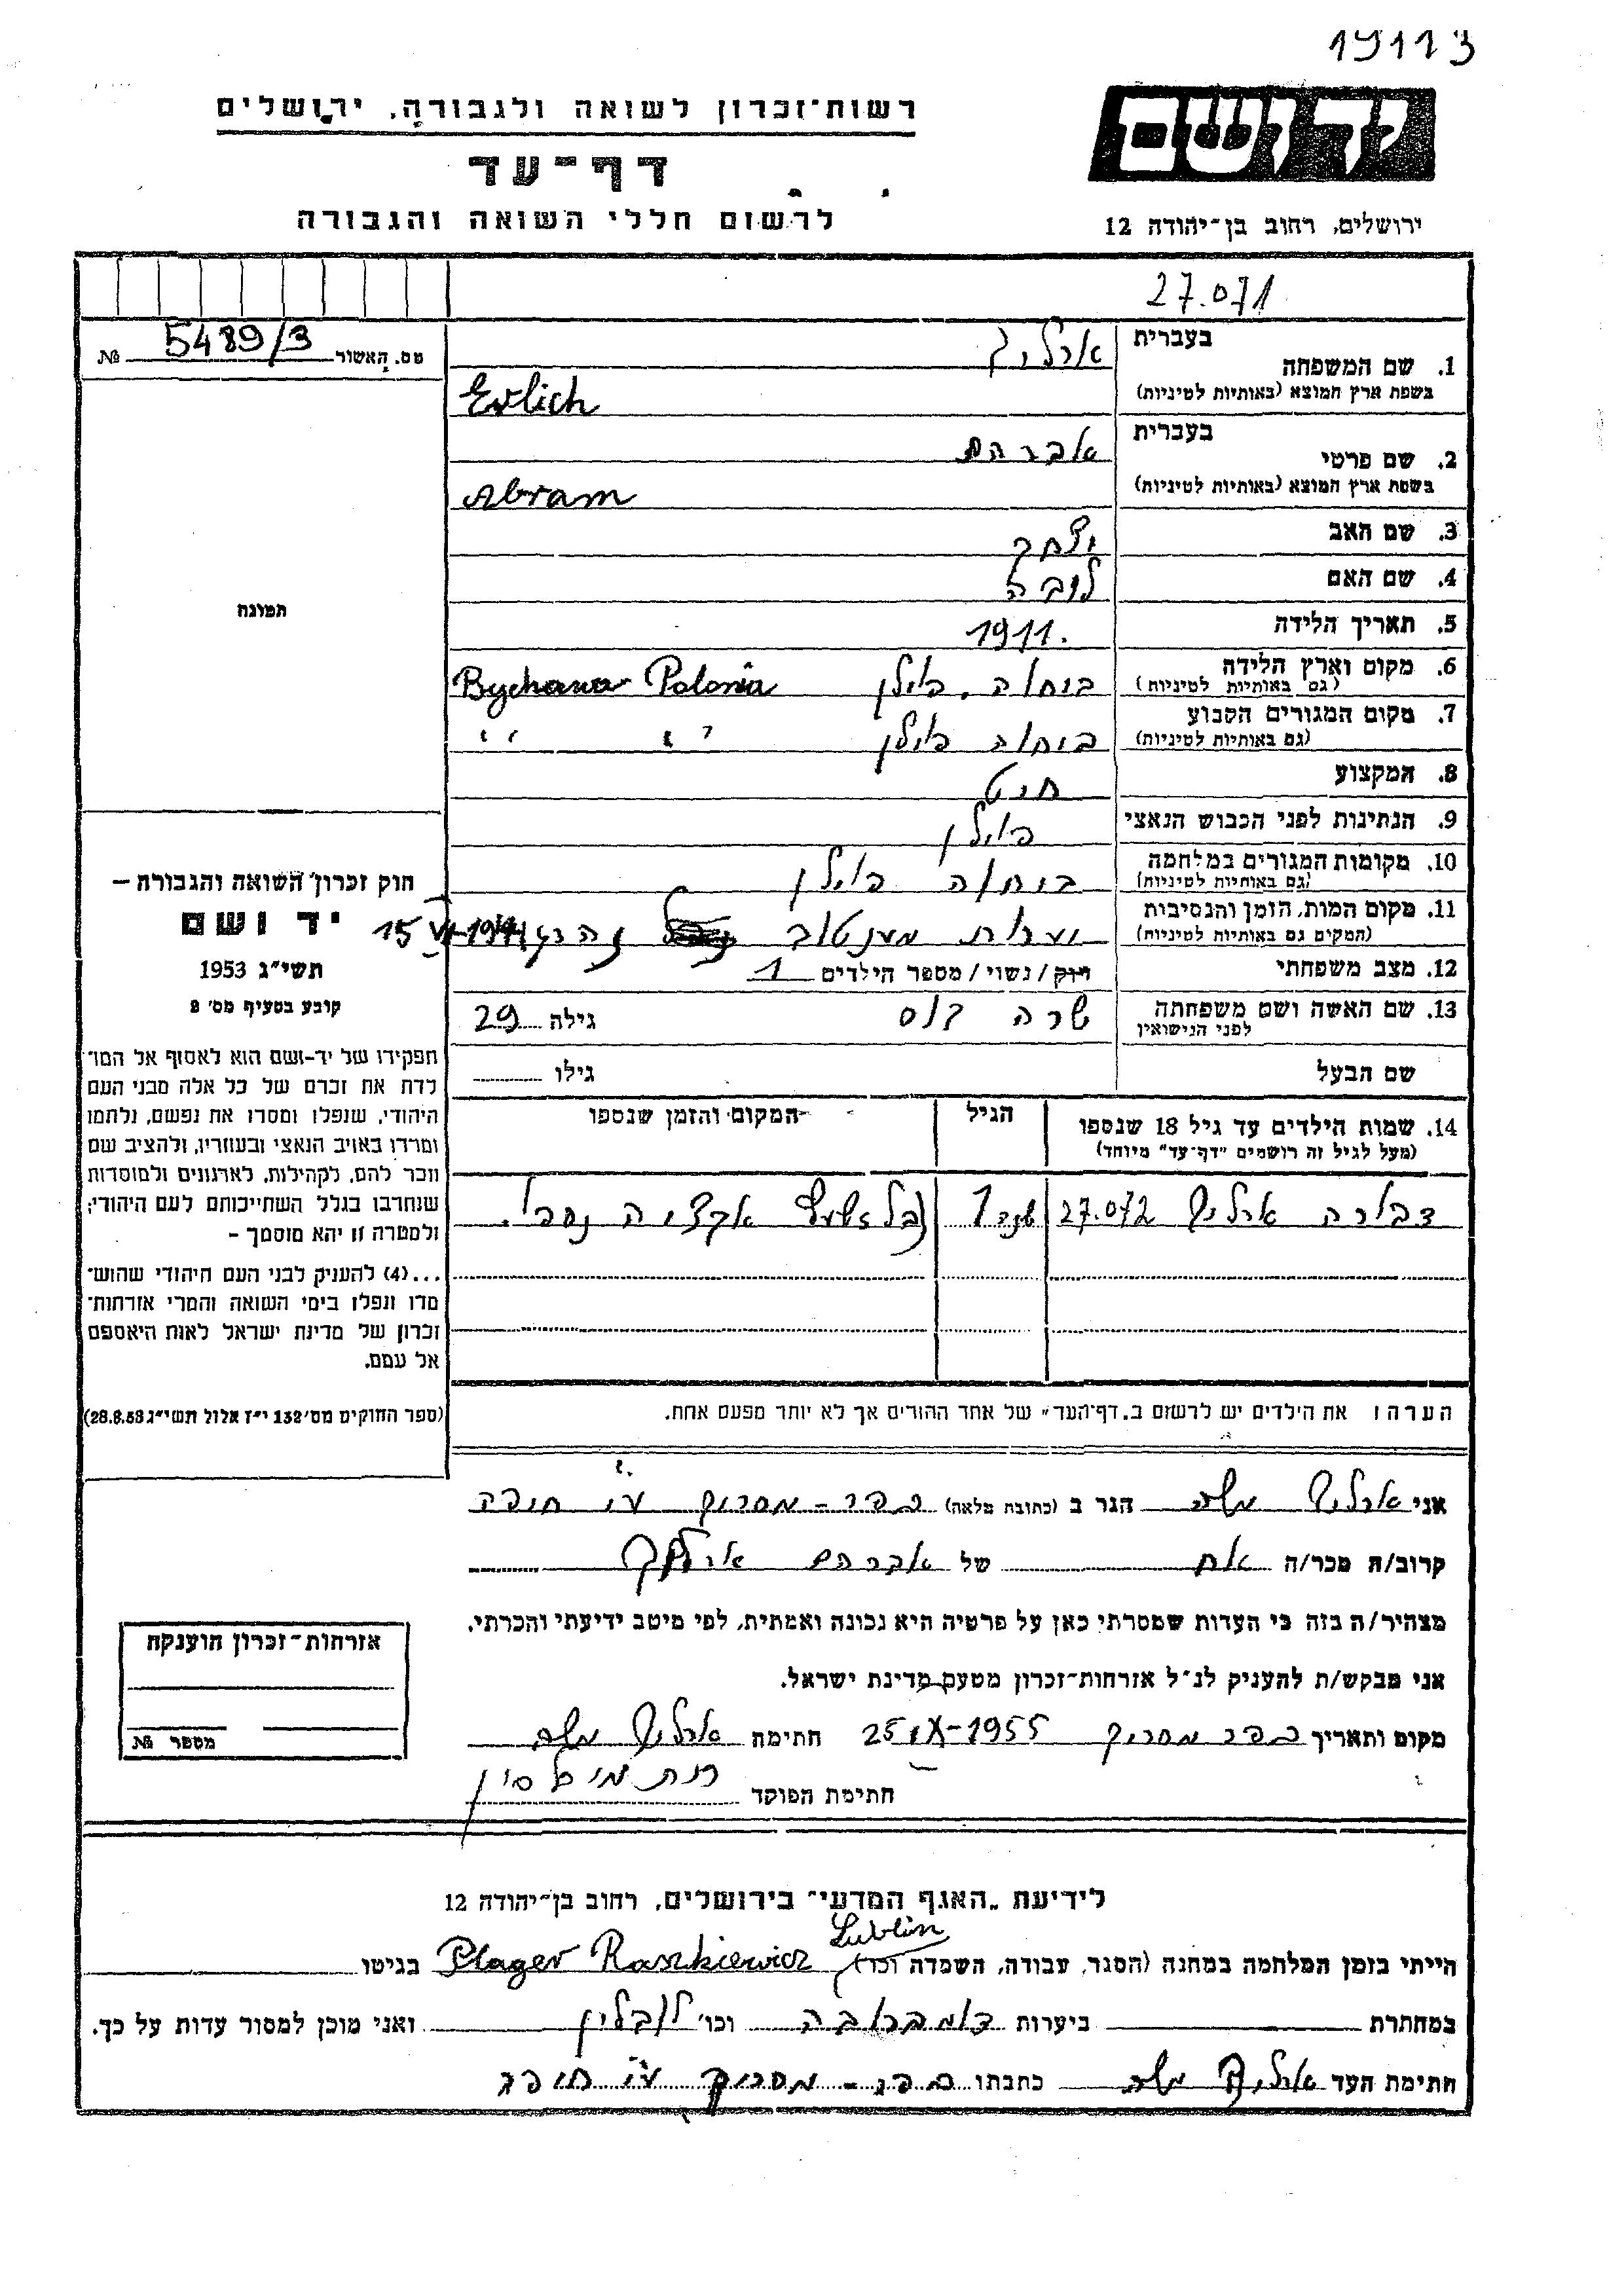 19113
רשות־זכרון לשואה ולגבורה, ירושלים
דף־עד
לרשום חללי השואה והגבורה
יד ושם
ירושלים, רחוב בן־יהודה 12
27.071
מס. האשור 5489/3 №
1. שם המשפחה בעברית ארליך
בשפת ארץ המוצא (באותיות לטיניות) Erlich
2. שם פרטי בעברית אברהם
בשפת ארץ המוצא (באותיות לטיניות) Abram
3. שם האב יצחק
4. שם האם לובה
5. תאריך הלידה 1911.
6. מקום וארץ הלידה (גם באותיות לטיניות) ביחוה, פולין Bychawa Polonia
7. מקום המגורים הקבוע (גם באותיות לטיניות) ביחוה פולין " "
8. המקצוע חיט
9. הנתינות לפני הכבוש הנאצי פולין
10. מקומות המגורים במלחמה (גם באותיות לטיניות) ביחוה פולין
11. מקום המות, הזמן והנסיבות (המקום גם באותיות לטיניות) יערות נהרג
12. מצב משפחתי רוק/נשוי/מספר הילדים 1
13. שם האשה ושם משפחתה לפני הנישואין שרה גילה 29
שם הבעל גילו
14. שמות הילדים עד גיל 18 שנספו (מעל לגיל זה רושמים "דף־עד" מיוחד) הגיל המקום והזמן שנספו
דבורה ארליך 27.072 שנה 1 אקציה נספו.
הערה: את הילדים יש לרשום ב„דף־העד" של אחד ההורים אך לא יותר מפעם אחת.
תמונה
חוק זכרון השואה והגבורה –
יד ושם
תשי"ג 1953
קובע בסעיף מס׳ 2
תפקידו של יד-ושם הוא לאסוף אל המו־
לדת את זכרם של כל אלה מבני העם
היהודי, שנפלו ומסרו את נפשם, נלחמו
ומרדו באויב הנאצי ובעוזריו, ולהציב שם
וזכר להם, לקהילות, לארגונים ולמוסדות
שנחרבו בגלל השתייכותם לעם היהודי;
ולמטרה זו יהא מוסמך –
...(4) להעניק לבני העם היהודי שהוש־
מדו ונפלו בימי השואה והמרי אזרחות־
זכרון של מדינת ישראל לאות היאספם
אל עמם.
(ספר החוקים מס׳ 132 י"ז אלול תשי"ג 28.8.53)
אני ארליך משה הגר ב (כתובת מלאה) כפר - מסריק ע"י חיפה
קרוב/ה מכר/ה אח של אברהם ארליך
מצהיר/ה בזה כי העדות שמסרתי כאן על פרטיה היא נכונה ואמתית, לפי מיטב ידיעתי והכרתי.
אני מבקש/ת להעניק לנ"ל אזרחות־זכרון מטעם מדינת ישראל.
מקום ותאריך כפר מסריק 25 IX-1955 חתימה ארליך משה
חתימת הפוקד
אזרחות־זכרון הוענקה
מספר №
לידיעת „האגף המדעי" בירושלים, רחוב בן־יהודה 12
הייתי בזמן המלחמה במחנה (הסגר, עבודה, השמדה וכו׳) Plager Raszkiewicz Lublin בגיטו
במחתרת ביערות דומברובה וכו׳ לובלין ואני מוכן למסור עדות על כך.
חתימת העד ארליך משה כתבתו כפר - מסריק ע"י חיפה